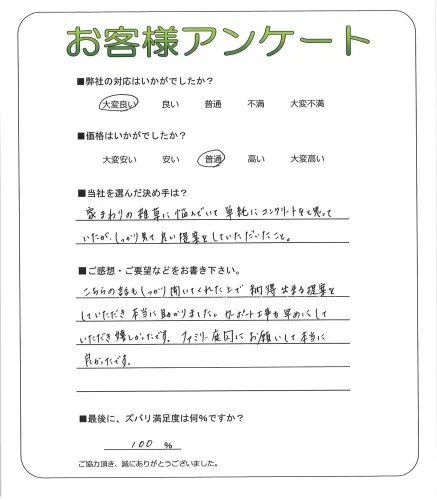 お客様アンケート
■弊社の対応はいかがでしたか?
大変良い 良い 普通 不満 大変不満
■価格はいかがでしたか?
大変安い 安い 普通 高い 大変高い
■当社を選んだ決め手は?
家まわりの雑草に悩んでいて単純にコンクリートをと思って
いたが、しっかり見て良い提案をしていただいたこと。
■ご感想・ご要望などをお書き下さい。
こちらの話もしっかり聞いてくれた上で納得出来る提案を
していただき本当に助かりました。カーポート工事も早めにして
いただき嬉しかったです。ファミリー庭園にお願いして本当に
良かったです。
■最後に、ズバリ満足度は何%ですか?
100 %
ご協力頂き、誠にありがとうございました。